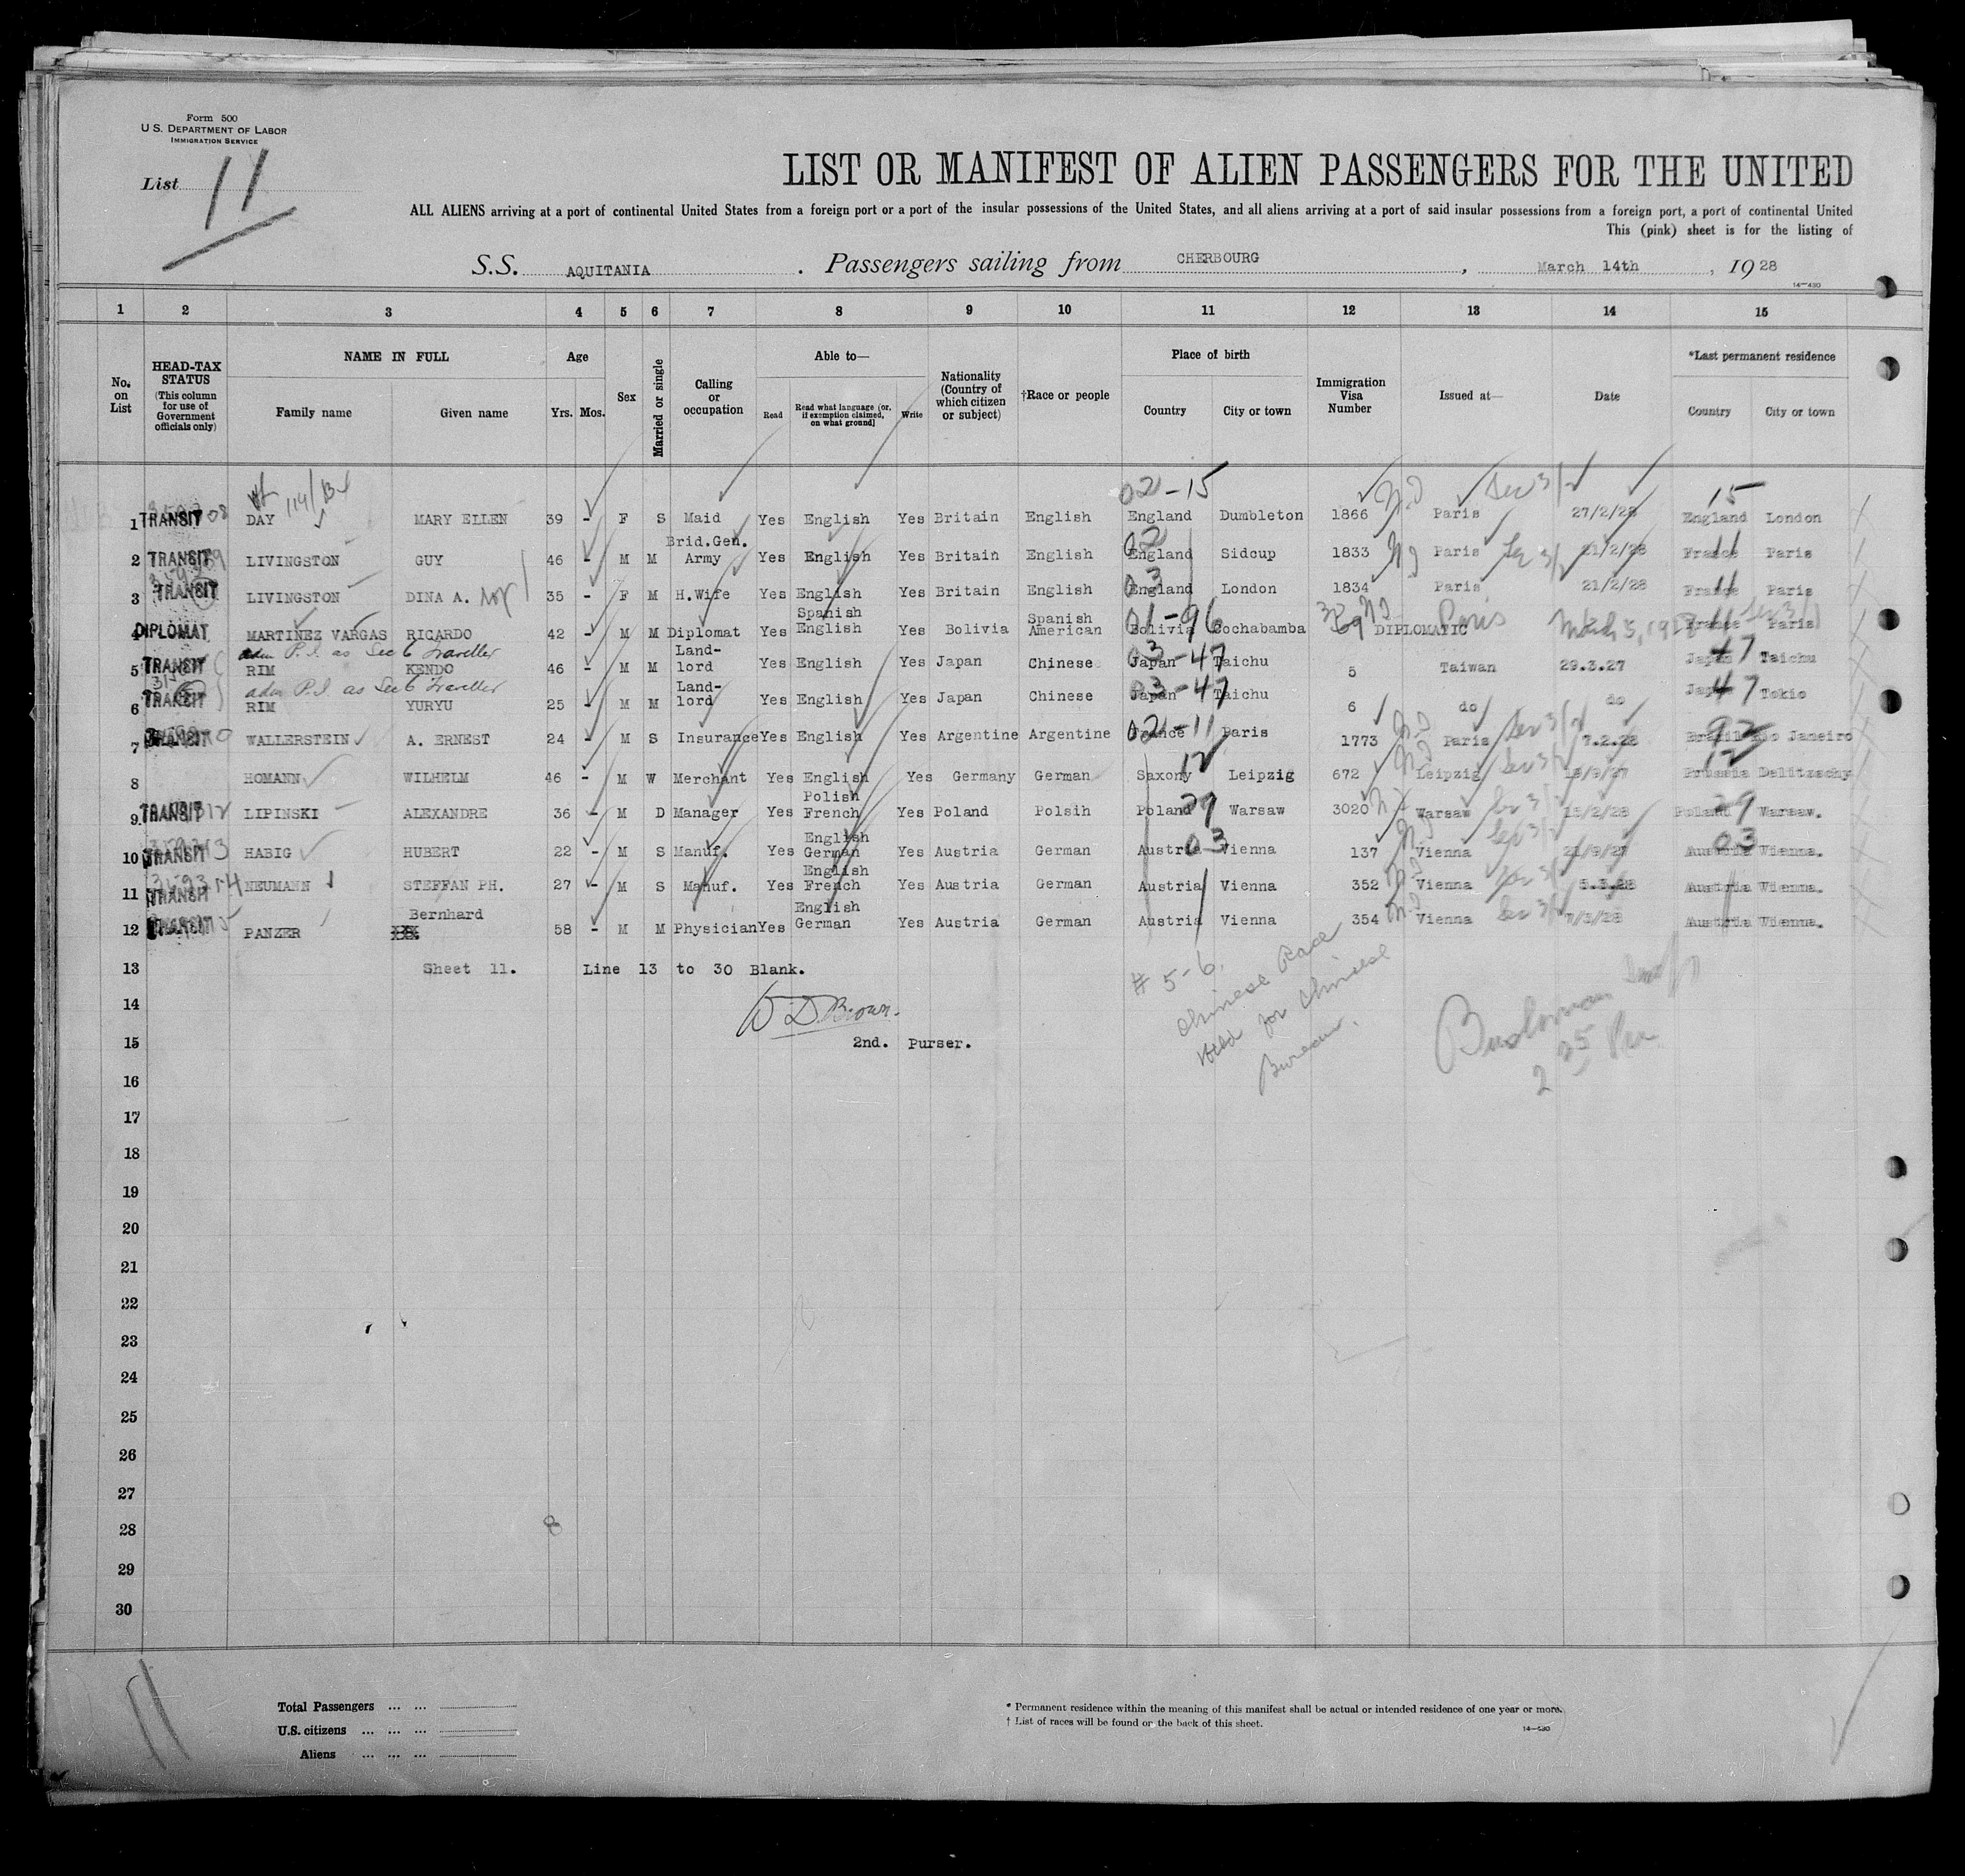 Form 500
U. S. DEPARTMENT OF LABOR
IMMIGRATION SERVICE
List 11
LIST OR MANIFEST OF ALIEN PASSENGERS FOR THE UNITED
ALL ALIENS arriving at a port of continental United States from a foreign port or a port of the insular possessions of the United States, and all aliens arriving at a port of said insular possessions from a foreign port, a port of continental United
This (pink) sheet is for the listing of
S.S. AQUITANIA . Passengers sailing from CHERBOURG , March 14th , 19 28
14—430
1 2 3 4 5 6 7 8 9 10 11 12 13 14 15
No. on List
HEAD-TAX STATUS (This column for use of Government officials only)
NAME IN FULL
Family name Given name
Age
Yrs. Mos.
Sex
Married or single
Calling or occupation
Able to—
Read Read what language (or, if exemption claimed, on what ground) Write
Nationality (Country of which citizen or subject)
†Race or people
Place of birth
Country City or town
Immigration Visa Number
Issued at—
Date
*Last permanent residence
Country City or town
114/
02-15 15
1 TRANSIT DAY MARY ELLEN 39 - F S Maid Yes English Yes Britain English England Dumbleton 1866 Paris 27/2/28 England London
2 TRANSIT LIVINGSTON GUY 46 - M M Brid.Gen. Army Yes English Yes Britain English England 02 Sidcup 1833 Paris 21/2/28 France 11 Paris
3 TRANSIT LIVINGSTON DINA A. 35 - F M H.Wife Yes English Yes Britain English England 03 London 1834 Paris 21/2/28 France 11 Paris
4 DIPLOMAT MARTINEZ VARGAS RICARDO 42 - M M Diplomat Yes Spanish English Yes Bolivia Spanish American Bolivia 01-96 Cochabamba DIPLOMATIC Paris March 5, 1928 France 11 Paris
adm P.I. as Sec 6 Traveller
5 TRANSIT RIM KENDO 46 - M M Land-lord Yes English Yes Japan Chinese Japan 03-47 Taichu 5 Taiwan 29.3.27 Japan 47 Taichu
adm P.I. as Sec 6 Traveller
6 TRANSIT RIM YURYU 25 - M M Land-lord Yes English Yes Japan Chinese Japan 03-47 Taichu 6 do do Japan 47 Tokio
7 TRANSIT WALLERSTEIN A. ERNEST 24 - M S Insurance Yes English Yes Argentine Argentine France 02-11 Paris 1773 Paris 7.2.28 Brazil 92 Rio Janeiro
8 HOMANN WILHELM 46 - M W Merchant Yes English Yes Germany German Saxony 12 Leipzig 672 Leipzig Prussia 12 Delitzschy
9 TRANSIT LIPINSKI ALEXANDRE 36 - M D Manager Yes Polish French Yes Poland Polsih Poland 29 Warsaw 3020 Warsaw Poland 29 Warsaw.
10 TRANSIT HABIG HUBERT 22 - M S Manuf. Yes English German Yes Austria German Austria 03 Vienna 137 Vienna 21/9/27 Austria 03 Vienna.
11 TRANSIT 359314 NEUMANN STEFFAN PH. 27 - M S Manuf. Yes English French Yes Austria German Austria Vienna 352 Vienna 5.3.28 Austria Vienna.
12 TRANSIT PANZER Bernhard 58 - M M Physician Yes English German Yes Austria German Austria Vienna 354 Vienna 7/3/28 Austria Vienna.
13 Sheet 11. Line 13 to 30 Blank.
14 W D Brown.
15 2nd. Purser.
# 5-6.
Chinese Race
Held for Chinese
Bureau.
16
17
18
19
20
21
22
23
24
25
26
27
28
29
30
8
11
Total Passengers ... ...
U.S. citizens ... ... ...
Aliens ... ... ...
* Permanent residence within the meaning of this manifest shall be actual or intended residence of one year or more.
† List of races will be found on the back of this sheet.
14—430